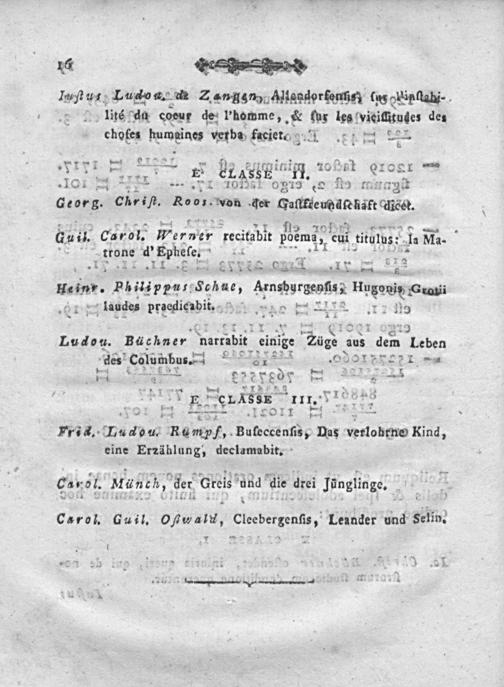 16
Iustus Ludou. de Zangen, Allendorfensis, sur l'instabi-
lité du coeur de l'homme, & sur les vicissitudes des
choses humaines verba faciet.
E CLASSE II.
Georg. Christ. Roos von der Gastfreundschaft dicet.
Guil. Carol. Werner recitabit poema, cui titulus: la Ma-
trone d'Ephese.
Heinr. Philippus Schue, Arnsburgensis, Hugonis Grotii
laudes praedicabit.
Ludou. Büchner narrabit einige Züge aus dem Leben
des Columbus.
E CLASSE III.
Frid. Ludou. Rumpf, Buseccensis, Das verlohrne Kind,
eine Erzählung, declamabit.
Carol. Münch, der Greis und die drei Jünglinge.
Carol. Guil. Osswald, Cleebergensis, Leander und Selin.